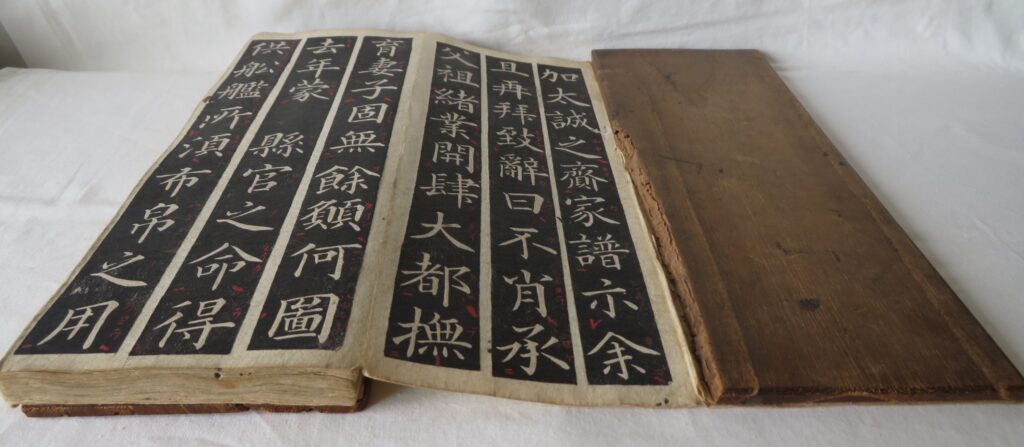 加太誠之齋家譜示余
且再拜致辭曰不肖承
父祖緒業開肆大都撫
育妻子固無餘願何圖
去年蒙
縣官之命得
供船艦所須布帛之用